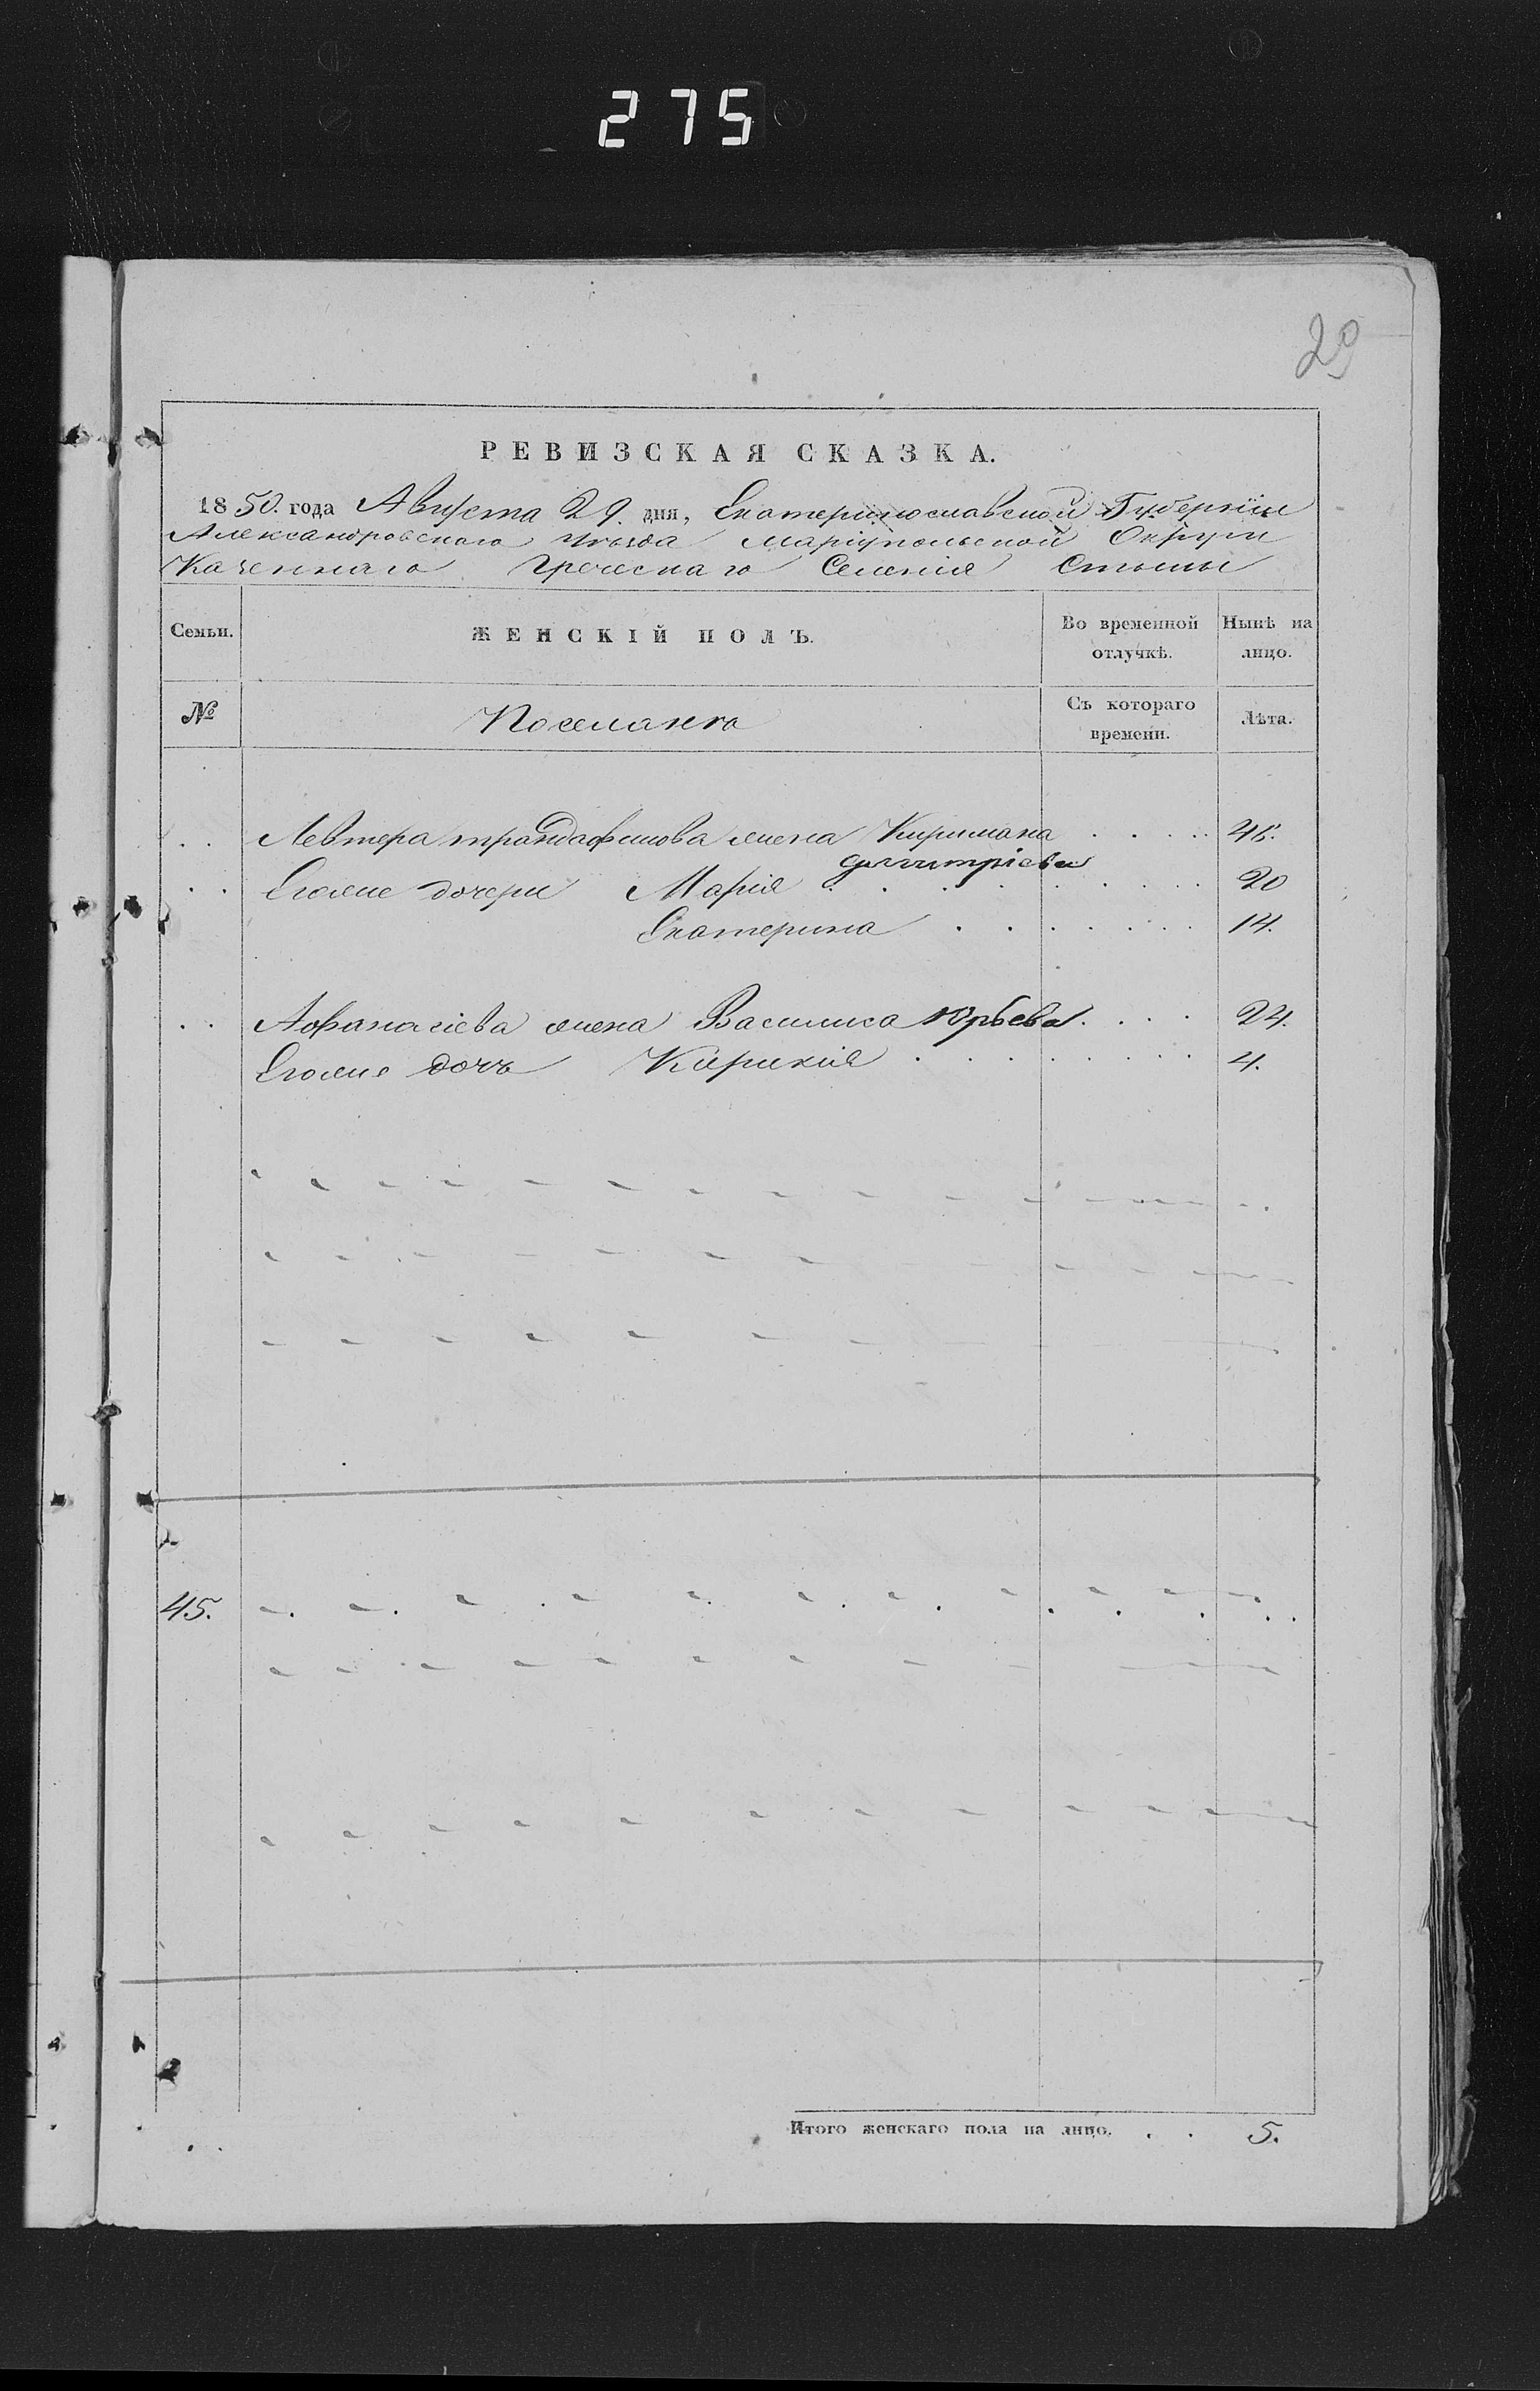 275
29
РЕВИЗСКАЯ СКАЗКА.
1850. года Августа 29. дня, Екатеринославской Губернии
Александровского Уезда Мариупольской Округи
Казеннаго Греческаго Селения Стылы
Семьи.
ЖЕНСКІЙ ПОЛЪ.
Во временной отлучкѣ.
Нынѣ на лицо.
№
Поселянъ
Съ котораго времени.
Лѣта.
Левтера трандафилова жена Киримана 48.
дмитріева
Егоже дочери Марія 20
Екатерина 14.
Афанасіева жена Василиса Юрьева 24.
Егоже дочь Кирикія 4.
45.
Итого женскаго пола на лицо. . . 5.